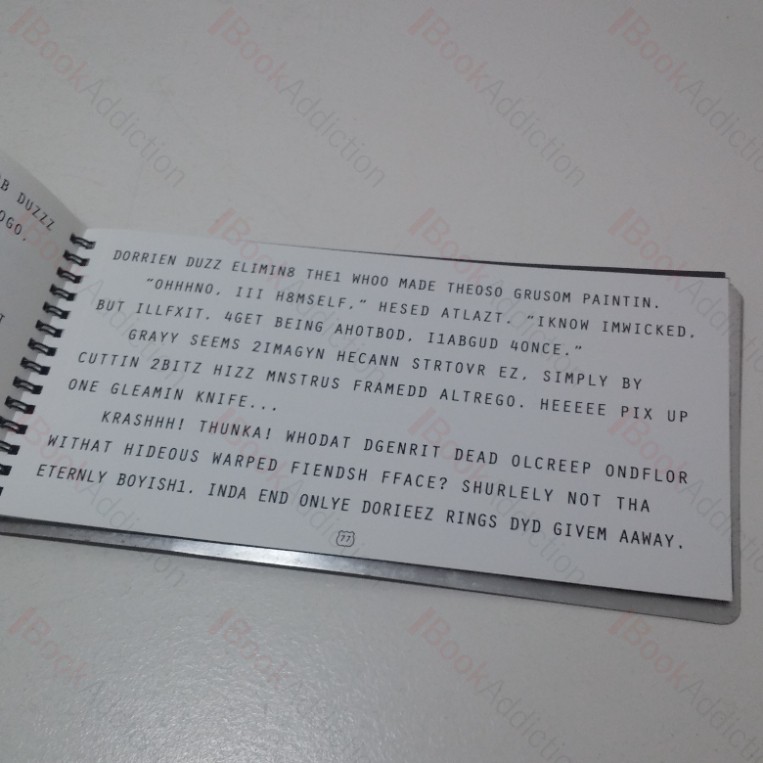 B DUZZZ
OGO.
DORRIEN DUZZ ELIMIN8 THE1 WHOO MADE THEOSO GRUSOM PAINTIN.
"OHHHNO, III H8MSELF," HESED ATLAZT. "IKNOW IMWICKED,
BUT ILLFXIT. 4GET BEING AHOTBOD, I1ABGUD 4ONCE."
GRAYY SEEMS 2IMAGYN HECANN STRTOVR EZ, SIMPLY BY
CUTTIN 2BITZ HIZZ MNSTRUS FRAMEDD ALTREGO. HEEEEE PIX UP
ONE GLEAMIN KNIFE...
KRASHHH! THUNKA! WHODAT DGENRIT DEAD OLCREEP ONDFLOR
WITHAT HIDEOUS WARPED FIENDSH FFACE? SHURLELY NOT THA
ETERNLY BOYISH1. INDA END ONLYE DORIEEZ RINGS DYD GIVEM AAWAY.
77
BookAddiction